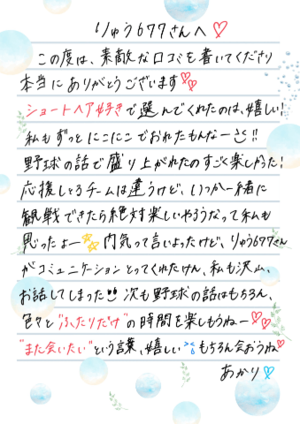 りゅう677さんへ♡
この度は、素敵な口コミを書いてくださり
本当にありがとうございます♡♡
ショートヘア好きで選んでくれたのは、嬉しい!
私もずっとにこにこでおれたもんなー!!
野球の話で盛り上がれたのすごく楽しかった!
応援しとるチームは違うけど、いつか一緒に
観戦できたら絶対楽しいやろうなって私も
思ったよー☆☆ 内気って言いよったけど、りゅう677さん
がコミュニケーションとってくれたけん、私も沢山、
お話してしまった!! 次も野球の話はもちろん、
色々と"ふたりだけ"の時間を楽しもうねー♡♡
"また会いたい"という言葉、嬉しい もちろん会おうね♡
あかり♡